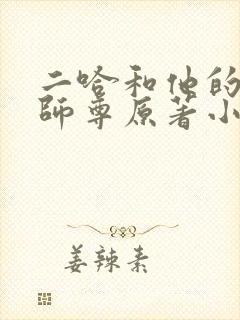 二哈和他的
師尊原著小
姜辣素